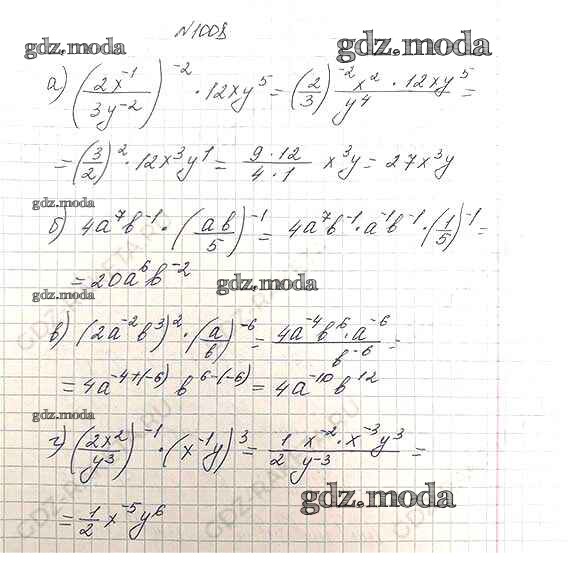 №1008
gdz.moda gdz.moda
а) (2x⁻¹/3y⁻²)⁻² · 12xy⁵ = (2/3)⁻² x² · 12xy⁵/y⁴ =
= (3/2)² · 12x³y¹ = 9·12/4·1 x³y = 27x³y
gdz.moda
б) 4a⁷b⁻¹ · (ab/5)⁻¹ = 4a⁷b⁻¹ · a⁻¹b⁻¹ · (1/5)⁻¹ =
= 20a⁶b⁻²
gdz.moda gdz.moda
в) (2a⁻²b³)² · (a/b)⁻⁶ = 4a⁻⁴b⁶ · a⁻⁶/b⁻⁶ =
= 4a⁻⁴⁺⁽⁻⁶⁾ b⁶⁻⁽⁻⁶⁾ = 4a⁻¹⁰b¹²
gdz.moda
г) (2x²/y³)⁻¹ · (x⁻¹y)³ = 1/2 x⁻² · x⁻³y³/y⁻³ =
gdz.moda
= 1/2 x⁻⁵y⁶